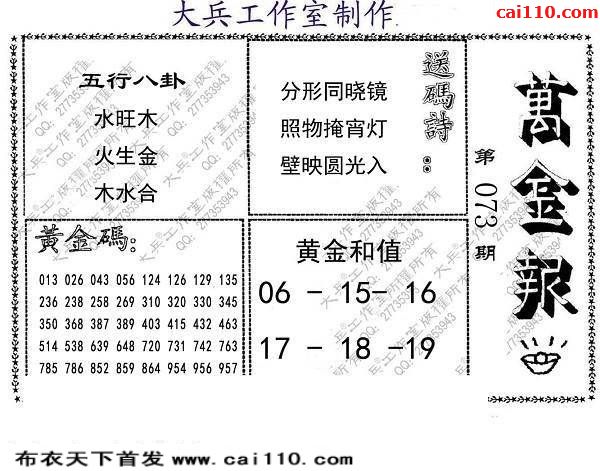 大兵工作室制作
cai110.com
五行八卦
水旺木
火生金
木水合
送碼詩:
分形同晓镜
照物掩宵灯
壁映圆光入
萬金報
第073期
黃金碼:
013 026 043 056 124 126 129 135
236 238 258 269 310 320 330 345
350 368 387 389 403 415 432 463
514 538 639 648 720 731 742 763
785 786 852 859 864 954 956 957
黄金和值
06 - 15- 16
17 - 18 -19
大兵®工作室版權所有
QQ: 277353943
布衣天下首发 www.cai110.com